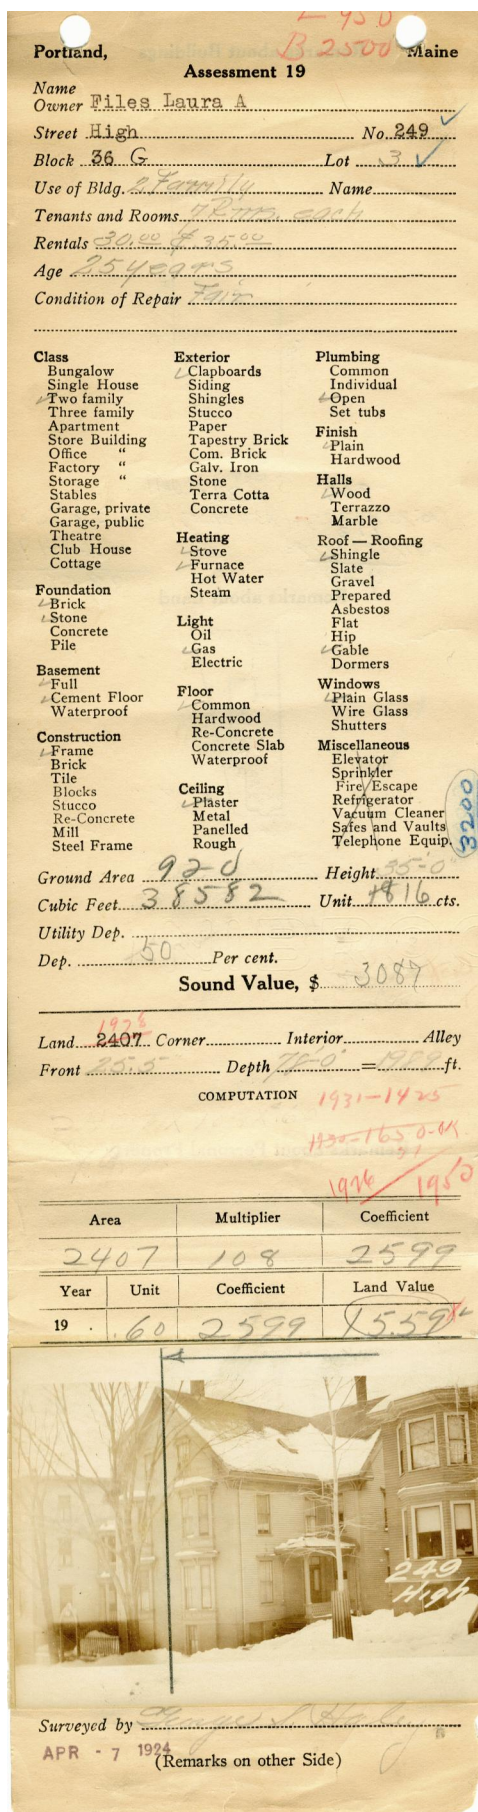 L 950
B 2500
Portland, Maine
Assessment 19
Name
Owner Files Laura A
Street High No. 249
Block 36 G Lot 3
Use of Bldg. 2 Family Name
Tenants and Rooms 7 Rms. each
Rentals 30.00 & 35.00
Age 25 years
Condition of Repair Fair
Class
Bungalow
Single House
Two family
Three family
Apartment
Store Building
Office "
Factory "
Storage "
Stables
Garage, private
Garage, public
Theatre
Club House
Cottage
Foundation
Brick
Stone
Concrete
Pile
Basement
Full
Cement Floor
Waterproof
Construction
Frame
Brick
Tile
Blocks
Stucco
Re-Concrete
Mill
Steel Frame
Exterior
Clapboards
Siding
Shingles
Stucco
Paper
Tapestry Brick
Com. Brick
Galv. Iron
Stone
Terra Cotta
Concrete
Heating
Stove
Furnace
Hot Water
Steam
Light
Oil
Gas
Electric
Floor
Common
Hardwood
Re-Concrete
Concrete Slab
Waterproof
Ceiling
Plaster
Metal
Panelled
Rough
Plumbing
Common
Individual
Open
Set tubs
Finish
Plain
Hardwood
Halls
Wood
Terrazzo
Marble
Roof — Roofing
Shingle
Slate
Gravel
Prepared
Asbestos
Flat
Hip
Gable
Dormers
Windows
Plain Glass
Wire Glass
Shutters
Miscellaneous
Elevator
Sprinkler
Fire Escape
Refrigerator
Vacuum Cleaner
Safes and Vaults
Telephone Equip.
3200
Ground Area 920 Height 35-0
Cubic Feet 38582 Unit 16 cts.
Utility Dep.
Dep. 50 Per cent.
Sound Value, $ 3087
1928
Land 2407 Corner Interior Alley
Front 25.5 Depth 78-0 = 1989 ft.
COMPUTATION
1931-1425
1930-1650-OK
1926 1950
Area Multiplier Coefficient
2407 108 2599
Year Unit Coefficient Land Value
19 .60 2599 1559
249
High
Surveyed by
APR - 7 1924
(Remarks on other Side)